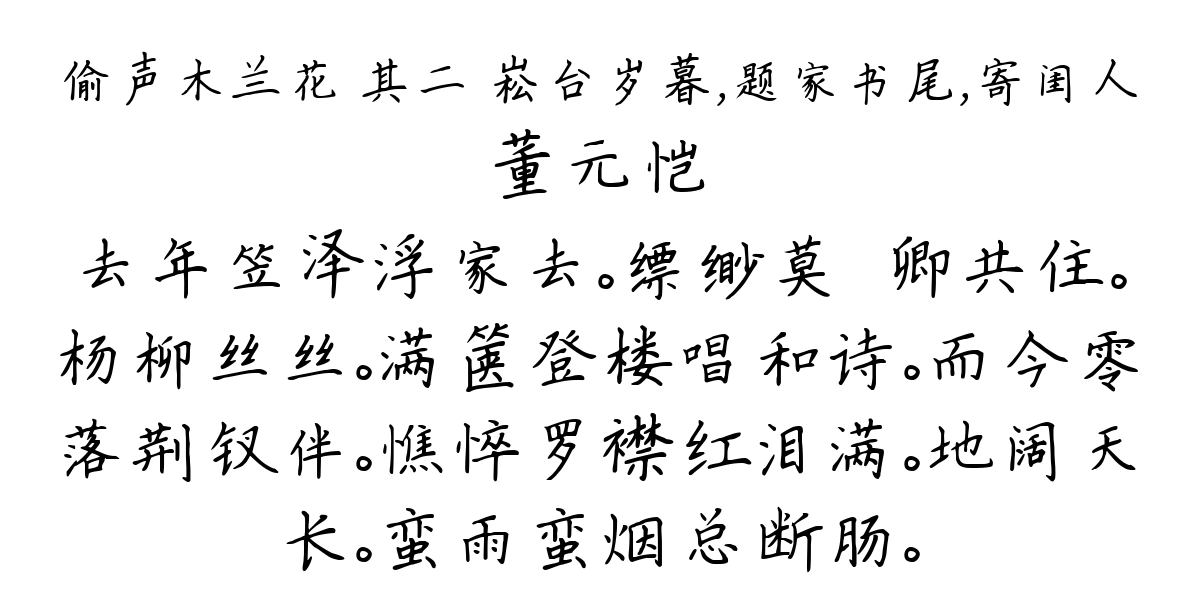 偷声木兰花 其二 崧台岁暮,题家书尾,寄闺人
董元恺
去年笠泽浮家去。缥缈莫 卿共住。
杨柳丝丝。满箧登楼唱和诗。而今零
落荆钗伴。憔悴罗襟红泪满。地阔天
长。蛮雨蛮烟总断肠。